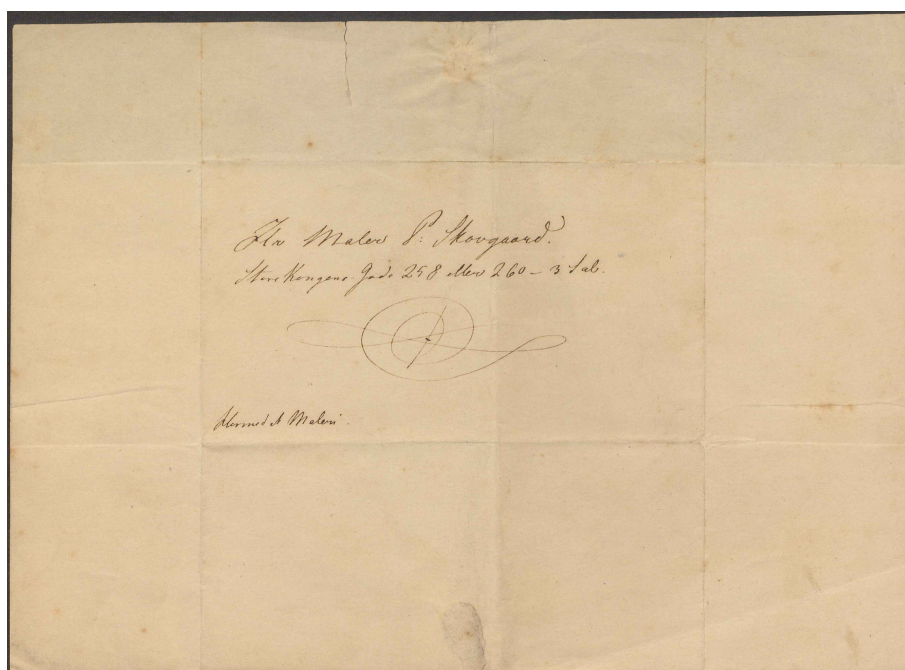 Hr Maler P: Skovgaard.
Store Kongens Gade 258 eller 260 – 3 Sal.
Hermed et Maleri.